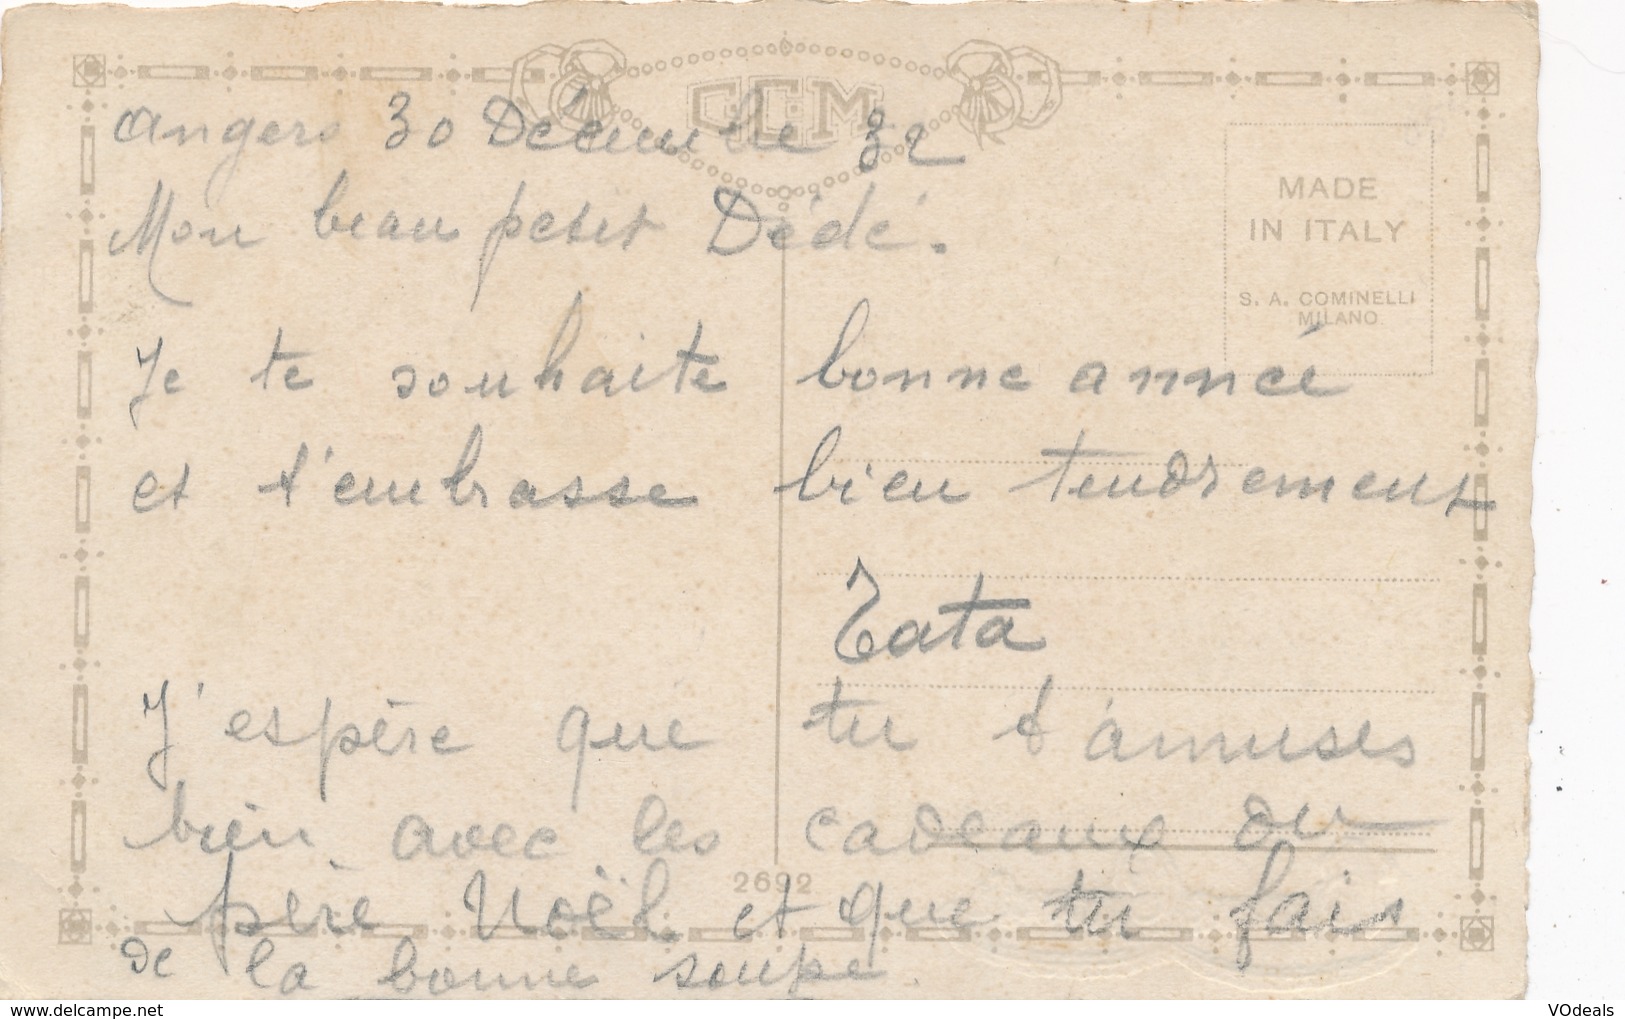 CCM
Angers 30 Décembre 32
Mon beau petit Dédé.
MADE
IN ITALY
S. A. COMINELLI
MILANO
Je te souhaite bonne année
et t'embrasse bien tendrement
Tata
J'espère que tu t'amuses
bien avec les cadeaux du
père Noël et que tu fais
de la bonne soupe.
2692
www.delcampe.net
VOdeals